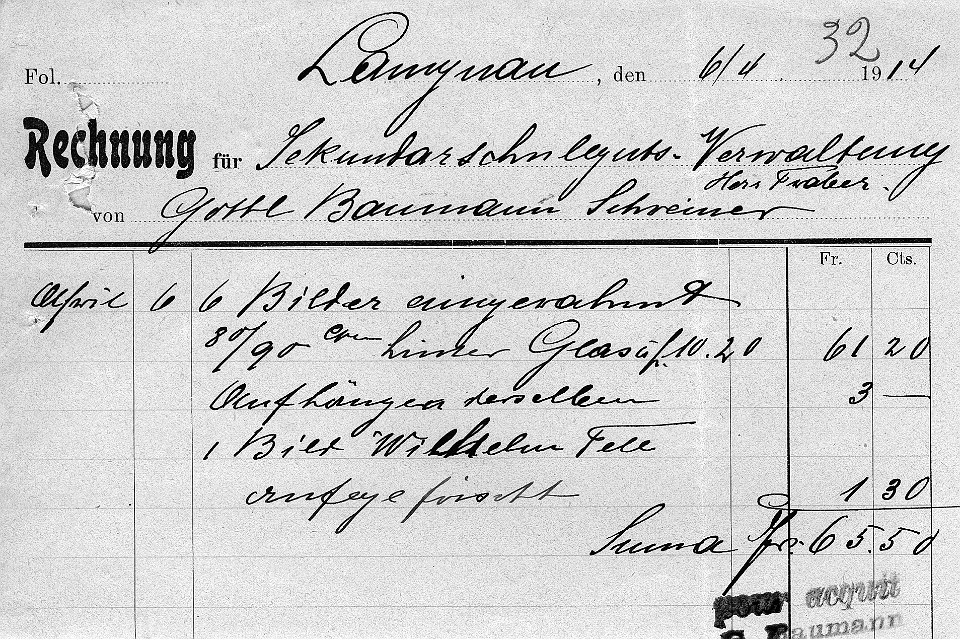 32
Fol. Langnau, den 6/4 1914
Rechnung für Sekundarschulguts-Verwaltung
Herr
von Gottl Baumann Schreiner
Fr. Cts.
April 6 6 Bilder eingerahmt
80/90 cm hinter Glas à f. 10.20 61 20
Aufhängen derselben 3 —
1 Bild Wilhelm Tell
aufgefrischt 1 30
Suma Frs. 65.50
pour acquit
G. Baumann